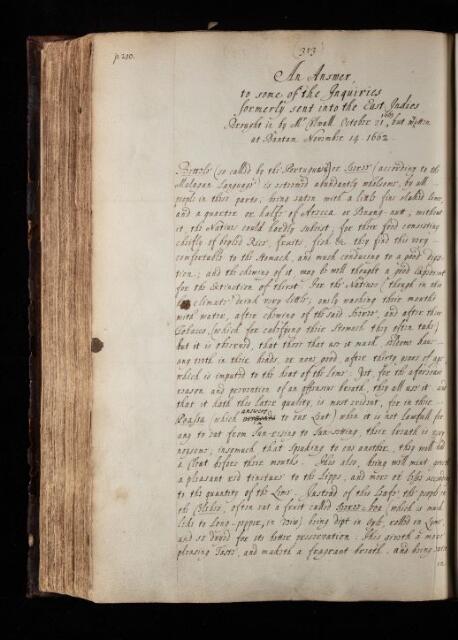 p. 210.
(313)
An Answer
to some of the Inquiries
formerly sent into the East Indies
Brought in by Mr Howell. October 21th but written
at Bantam Novembr. 14. 1662.
(so called by the Portuguese) or (according to the
Malayan Language) is esteemed abundantly wholsom, by all
people in these parts, being eaten with a little fine slaked lime,
and a quarter or halfe of Arecca or Pinang-nutt; without
it, the Natives could hardly subsist; for their food consisting
chiefly of boyled Rice, fruits, fish &c they find this very
comfortable to the stomach, and much conducing to a good diges
tion; and the chewing of it may be well thought a good expedient
for the Extinction of thirst. For the Natives (though in this
climate) drink very little; only washing their mouths
with water, after chewing of the said and after their
Tobacco, (which for calefying their Stomach they often take)
but it is observed, that those that use it much, seldome have
any teeth in their heads, or none good, after thirty years of age
which is imputed to the heat of the lime. Yet, for the aforesaid
reason and prevention of an offensive breath, they all use it; and
that it hath this later quality, is most evident, for in their
Puassa (which answers to our Lent) when it is not lawfull for
any to eat from Sun-rising to Sun-setting, their breath is very
noysome; insomuch that speaking to one another, they will hold
a Clout before their mouths. This also, being well ment, gives
a pleasant red tincture to the Lipps, and more or less according
to the quantity of the Lime. Instead of this Leafe the people in
the often eat a fruit called (which is much
like to Long-pepper, in view) being dipt in rolled in Lime,
and so dryed for its better preservation. This giveth a more
pleasing Taste, and maketh a fragrant breath. and being